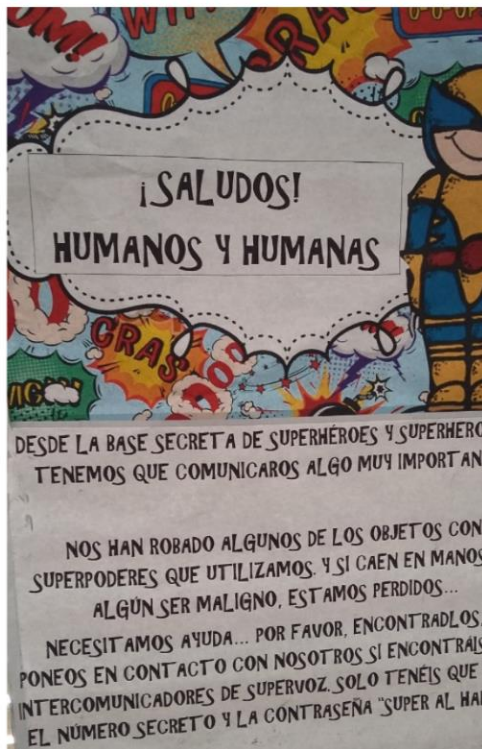 WI
CRA
¡SALUDOS!
HUMANOS Y HUMANAS
CRAS
DESDE LA BASE SECRETA DE SUPERHÉROES Y SUPERHERO
TENEMOS QUE COMUNICAROS ALGO MUY IMPORTAN
NOS HAN ROBADO ALGUNOS DE LOS OBJETOS CON
SUPERPODERES QUE UTILIZAMOS. Y SI CAEN EN MANOS
ALGÚN SER MALIGNO, ESTAMOS PERDIDOS...
NECESITAMOS AYUDA... POR FAVOR, ENCONTRADLOS.
PONEOS EN CONTACTO CON NOSOTROS SI ENCONTRÁIS
INTERCOMUNICADORES DE SUPERVOZ. SOLO TENÉIS QUE
EL NÚMERO SECRETO Y LA CONTRASEÑA "SUPER AL HA